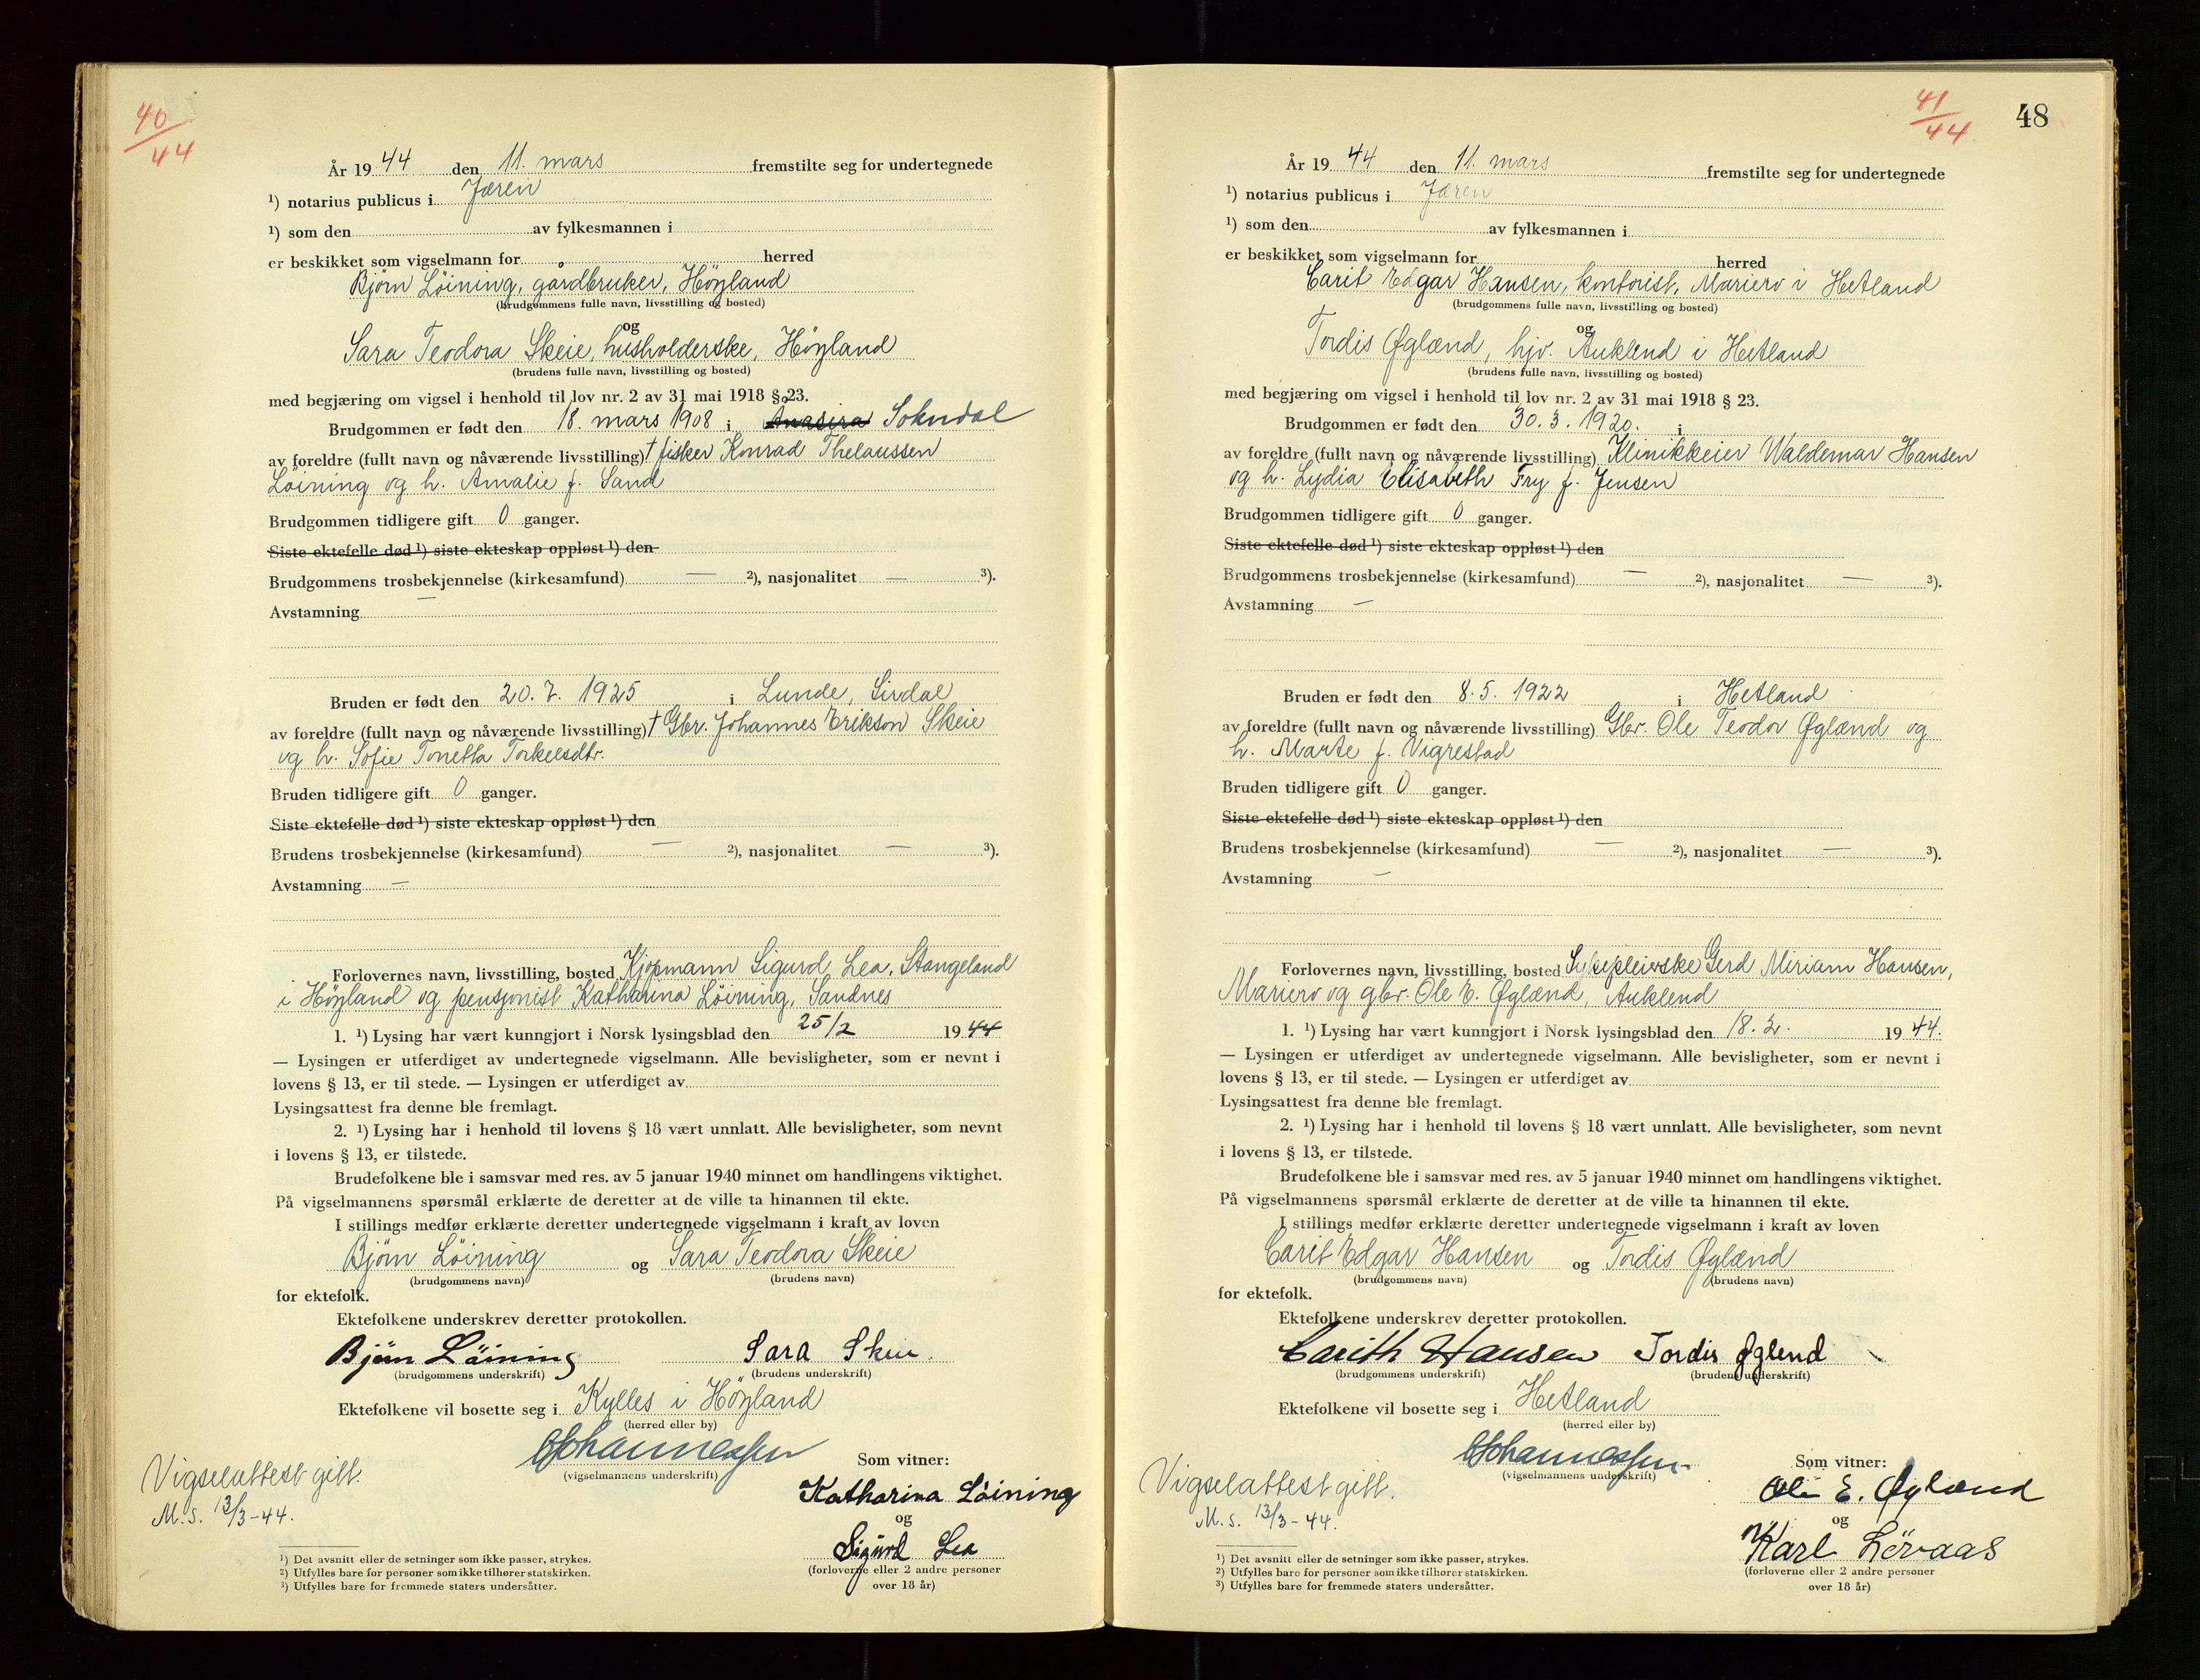 40/44
År 1944 den 11. mars fremstilte seg for undertegnede
1) notarius publicus i Jæren
1) som den av fylkesmannen i
er beskikket som vigselmann for herred
Bjørn Löining, gårdbruker, Höyland
(brudgommens fulle navn, livsstilling og bosted)
og
Sara Teodora Skeie, husholderske, Höyland
(brudens fulle navn, livsstilling og bosted)
med begjæring om vigsel i henhold til lov nr. 2 av 31 mai 1918 § 23.
Brudgommen er født den 18. mars 1908 i Anasira Sokndal
av foreldre (fullt navn og nåværende livsstilling) † fisker Konrad Thelaussen
Löining og h. Amalie f. Sand
Brudgommen tidligere gift 0 ganger.
Siste ektefelle død 1) siste ekteskap oppløst 1) den
Brudgommens trosbekjennelse (kirkesamfund) — 2), nasjonalitet — 3).
Avstamning —
Bruden er født den 20.7. 1925 i Lunde, Sirdal
av foreldre (fullt navn og nåværende livsstilling) † Gbr. Johannes Erikson Skeie
og h. Sofie Tonetta Torkelsdtr.
Bruden tidligere gift 0 ganger.
Siste ektefelle død 1) siste ekteskap oppløst 1) den
Brudens trosbekjennelse (kirkesamfund) — 2), nasjonalitet — 3).
Avstamning —
Forlovernes navn, livsstilling, bosted Kjøpmann Sigurd Lea, Stangeland
i Höyland og pensjonist Katharina Löining, Sandnes
1. 1) Lysing har vært kunngjort i Norsk lysingsblad den 25/2 1944
— Lysingen er utferdiget av undertegnede vigselmann. Alle bevisligheter, som er nevnt i
lovens § 13, er til stede. — Lysingen er utferdiget av
Lysingsattest fra denne ble fremlagt.
2. 1) Lysing har i henhold til lovens § 18 vært unnlatt. Alle bevisligheter, som nevnt
i lovens § 13, er tilstede.
Brudefolkene ble i samsvar med res. av 5 januar 1940 minnet om handlingens viktighet.
På vigselmannens spørsmål erklærte de deretter at de ville ta hinannen til ekte.
I stillings medfør erklærte deretter undertegnede vigselmann i kraft av loven
Bjørn Löining og Sara Teodora Skeie
(brudgommens navn) (brudens navn)
for ektefolk.
Ektefolkene underskrev deretter protokollen.
Björn Löining Sara Skeie.
(brudgommens underskrift) (brudens underskrift)
Ektefolkene vil bosette seg i Kylles i Höyland
(herred eller by)
Johannessen
(vigselmannens underskrift)
Som vitner:
Vigselattest gitt.
M.S. 13/3-44.
Katharina Löining
og
Sigurd Lea
(forloverne eller 2 andre personer
over 18 år)
1) Det avsnitt eller de setninger som ikke passer, strykes.
2) Utfylles bare for personer som ikke tilhører statskirken.
3) Utfylles bare for fremmede staters undersåtter.
41/44
48
År 1944 den 11. mars fremstilte seg for undertegnede
1) notarius publicus i Jæren
1) som den av fylkesmannen i
er beskikket som vigselmann for herred
Carit Edgar Hansen, kontorist, Mariero i Hetland
(brudgommens fulle navn, livsstilling og bosted)
og
Tordis Øglænd, hjv. Auklend i Hetland
(brudens fulle navn, livsstilling og bosted)
med begjæring om vigsel i henhold til lov nr. 2 av 31 mai 1918 § 23.
Brudgommen er født den 30.3.1920. i
av foreldre (fullt navn og nåværende livsstilling) Klinikkeier Waldemar Hansen
og h. Lydia Elisabeth Fry f. Jensen
Brudgommen tidligere gift 0 ganger.
Siste ektefelle død 1) siste ekteskap oppløst 1) den
Brudgommens trosbekjennelse (kirkesamfund) — 2), nasjonalitet — 3).
Avstamning —
Bruden er født den 8.5. 1922 i Hetland
av foreldre (fullt navn og nåværende livsstilling) Gbr. Ole Teodor Øglænd og
h. Marte f. Vigrestad
Bruden tidligere gift 0 ganger.
Siste ektefelle død 1) siste ekteskap oppløst 1) den
Brudens trosbekjennelse (kirkesamfund) — 2), nasjonalitet — 3).
Avstamning —
Forlovernes navn, livsstilling, bosted Sykepleierske Gerd Miriam Hansen,
Mariero og gbr. Ole E. Øglænd, Auklend
1. 1) Lysing har vært kunngjort i Norsk lysingsblad den 18.2. 1944.
— Lysingen er utferdiget av undertegnede vigselmann. Alle bevisligheter, som er nevnt i
lovens § 13, er til stede. — Lysingen er utferdiget av
Lysingsattest fra denne ble fremlagt.
2. 1) Lysing har i henhold til lovens § 18 vært unnlatt. Alle bevisligheter, som nevnt
i lovens § 13, er tilstede.
Brudefolkene ble i samsvar med res. av 5 januar 1940 minnet om handlingens viktighet.
På vigselmannens spørsmål erklærte de deretter at de ville ta hinannen til ekte.
I stillings medfør erklærte deretter undertegnede vigselmann i kraft av loven
Carit Edgar Hansen og Tordis Øglænd
(brudgommens navn) (brudens navn)
for ektefolk.
Ektefolkene underskrev deretter protokollen.
Carith Hansen Tordis Øglend
(brudgommens underskrift) (brudens underskrift)
Ektefolkene vil bosette seg i Hetland
(herred eller by)
Johannessen
(vigselmannens underskrift)
Som vitner:
Vigselattest gitt.
M.S. 13/3-44.
Ole E. Øglænd
og
Karl Lövaas
(forloverne eller 2 andre personer
over 18 år)
1) Det avsnitt eller de setninger som ikke passer, strykes.
2) Utfylles bare for personer som ikke tilhører statskirken.
3) Utfylles bare for fremmede staters undersåtter.